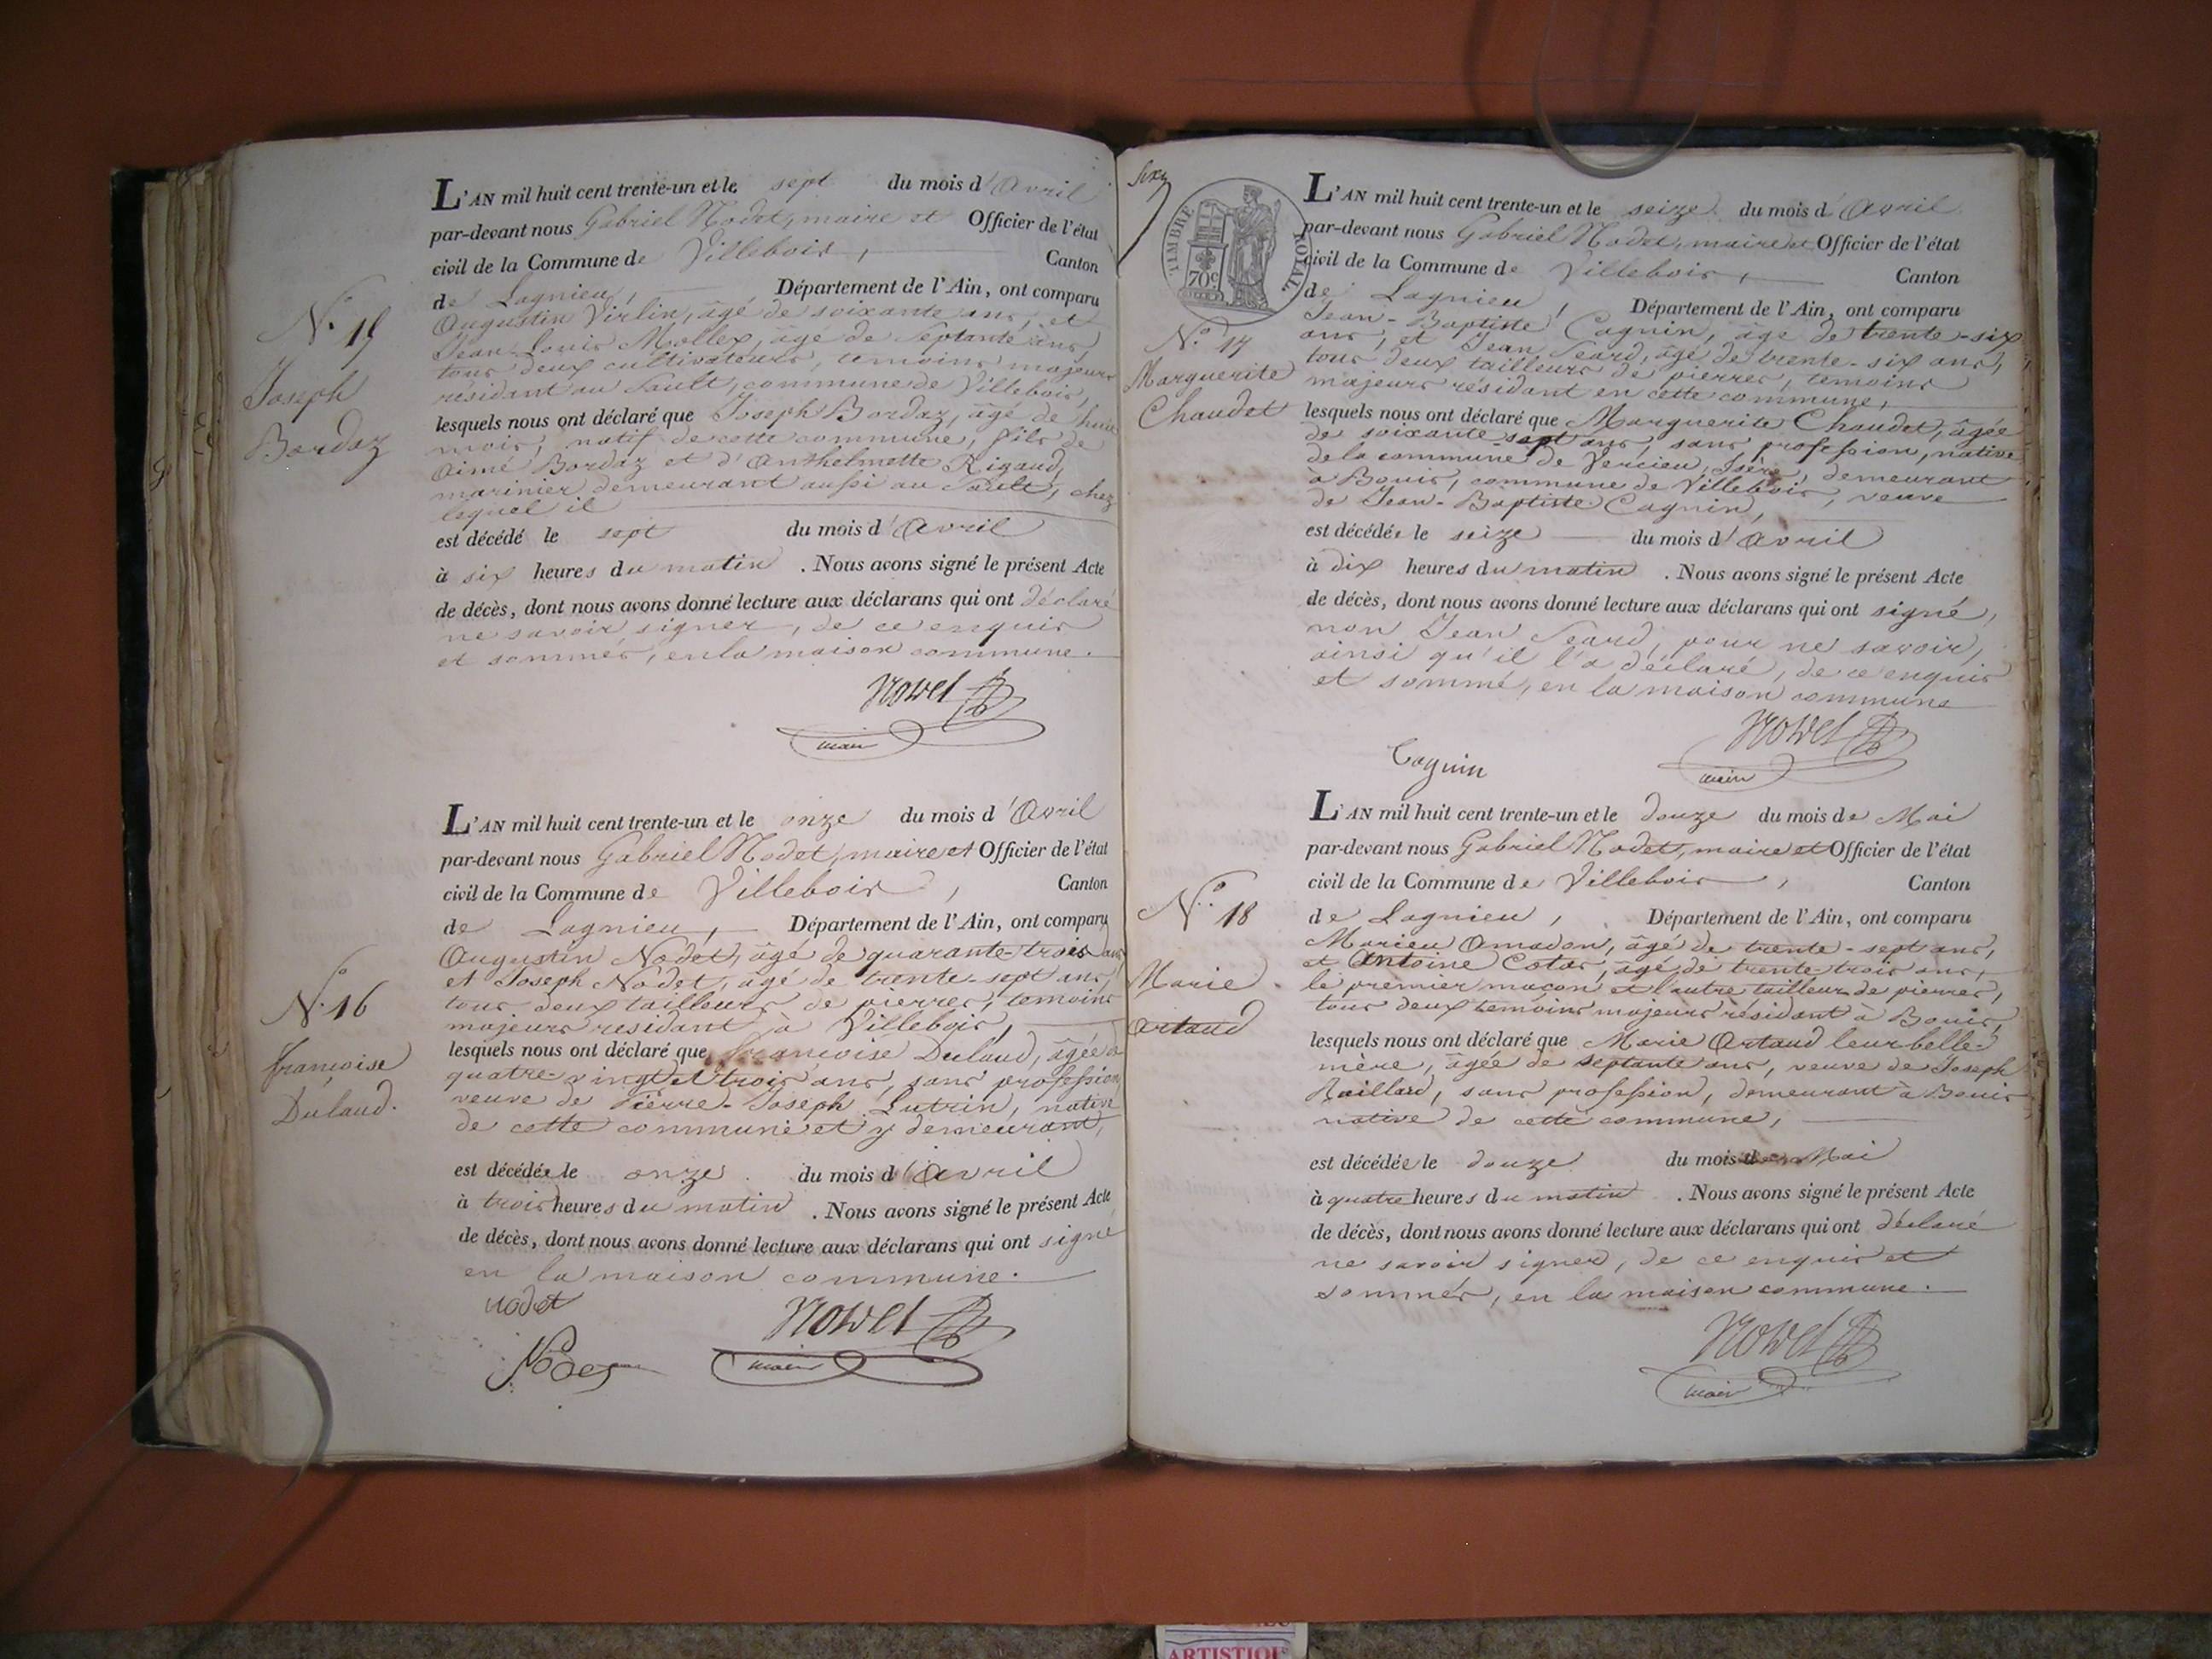 N.° 15
Joseph
Bordaz
L'AN mil huit cent trente-un et le sept du mois d'Avril
par-devant nous Gabriel Nodet, maire et Officier de l'état
civil de la Commune de Villebois, Canton
de Lagnieu, Département de l'Ain, ont comparu
Augustin Virlin, âgé de soixante ans, et
Jean-Louis Mollex, âgé de septante ans,
tous deux cultivateurs, temoins majeurs
résidant au Sault, commune de Villebois,
lesquels nous ont déclaré que Joseph Bordaz, âgé de huit
mois, natif de cette commune, fils de
Aimé Bordaz et d'Anthelmette Rigaud,
marinier demeurant aussi au Sault, chez
lequel il
est décédé le sept du mois d'Avril
à six heures du matin . Nous avons signé le présent Acte
de décès, dont nous avons donné lecture aux déclarans qui ont déclaré
ne savoir signer, de ce enquis
et sommés, en la maison commune.
Nodet
maire
N.° 16
françoise
Dulaud.
L'AN mil huit cent trente-un et le onze du mois d'Avril
par-devant nous Gabriel Nodet, maire et Officier de l'état
civil de la Commune de Villebois, Canton
de Lagnieu, Département de l'Ain, ont comparu
Augustin Nodet, âgé de quarante-trois ans
et Joseph Nodet, âgé de trente-sept ans,
tous deux tailleurs de pierres, temoins
majeurs residant à Villebois,
lesquels nous ont déclaré que françoise Dulaud, âgée de
quatre-vingt et trois ans, sans profession,
veuve de Pierre-Joseph Lutrin, native
de cette commune et y demeurant,
est décédée le onze du mois d'Avril
à trois heures du matin . Nous avons signé le présent Acte
de décès, dont nous avons donné lecture aux déclarans qui ont signé
en la maison commune.
Nodet
Nodet
Nodet
maire
TIMBRE ROYAL
70c
N.° 17
Marguerite
Chaudet
L'AN mil huit cent trente-un et le seize du mois d'Avril
par-devant nous Gabriel Nodet, maire et Officier de l'état
civil de la Commune de Villebois, Canton
de Lagnieu, Département de l'Ain, ont comparu
Jean-Baptiste Cagnin, âgé de trente-six
ans, et Jean Seard, âgé de trente-six ans,
tous deux tailleurs de pierres, temoins
majeurs résidant en cette commune,
lesquels nous ont déclaré que Marguerite Chaudet, âgée
de soixante-sept ans, sans profession, native
de la commune de Vercieu, Isère, demeurant
à Bouis, commune de Villebois, veuve
de Jean-Baptiste Cagnin,
est décédée le seize du mois d'Avril
à dix heures du matin . Nous avons signé le présent Acte
de décès, dont nous avons donné lecture aux déclarans qui ont signé,
non Jean Seard, pour ne savoir,
ainsi qu'il l'a déclaré, de ce enquis
et sommé, en la maison commune
Nodet
Cagnin
maire
N.° 18
Marie
Artaud
L'AN mil huit cent trente-un et le douze du mois de Mai
par-devant nous Gabriel Nodet, maire et Officier de l'état
civil de la Commune de Villebois, Canton
de Lagnieu, Département de l'Ain, ont comparu
Marieu Amadon, âgé de trente-sept ans,
et Antoine Cotas, âgé de trente-trois ans,
le premier maçon et l'autre tailleur de pierres,
tous deux temoins majeurs résidant à Bouis,
lesquels nous ont déclaré que Marie Artaud leur belle-
mère, âgée de septante ans, veuve de Joseph
Raillard, sans profession, demeurant à Bouis
native de cette commune,
est décédée le douze du mois de Mai
à quatre heures du matin . Nous avons signé le présent Acte
de décès, dont nous avons donné lecture aux déclarans qui ont déclaré
ne savoir signer, de ce enquis et
sommés, en la maison commune.
Nodet
maire
ARTISTIQUE